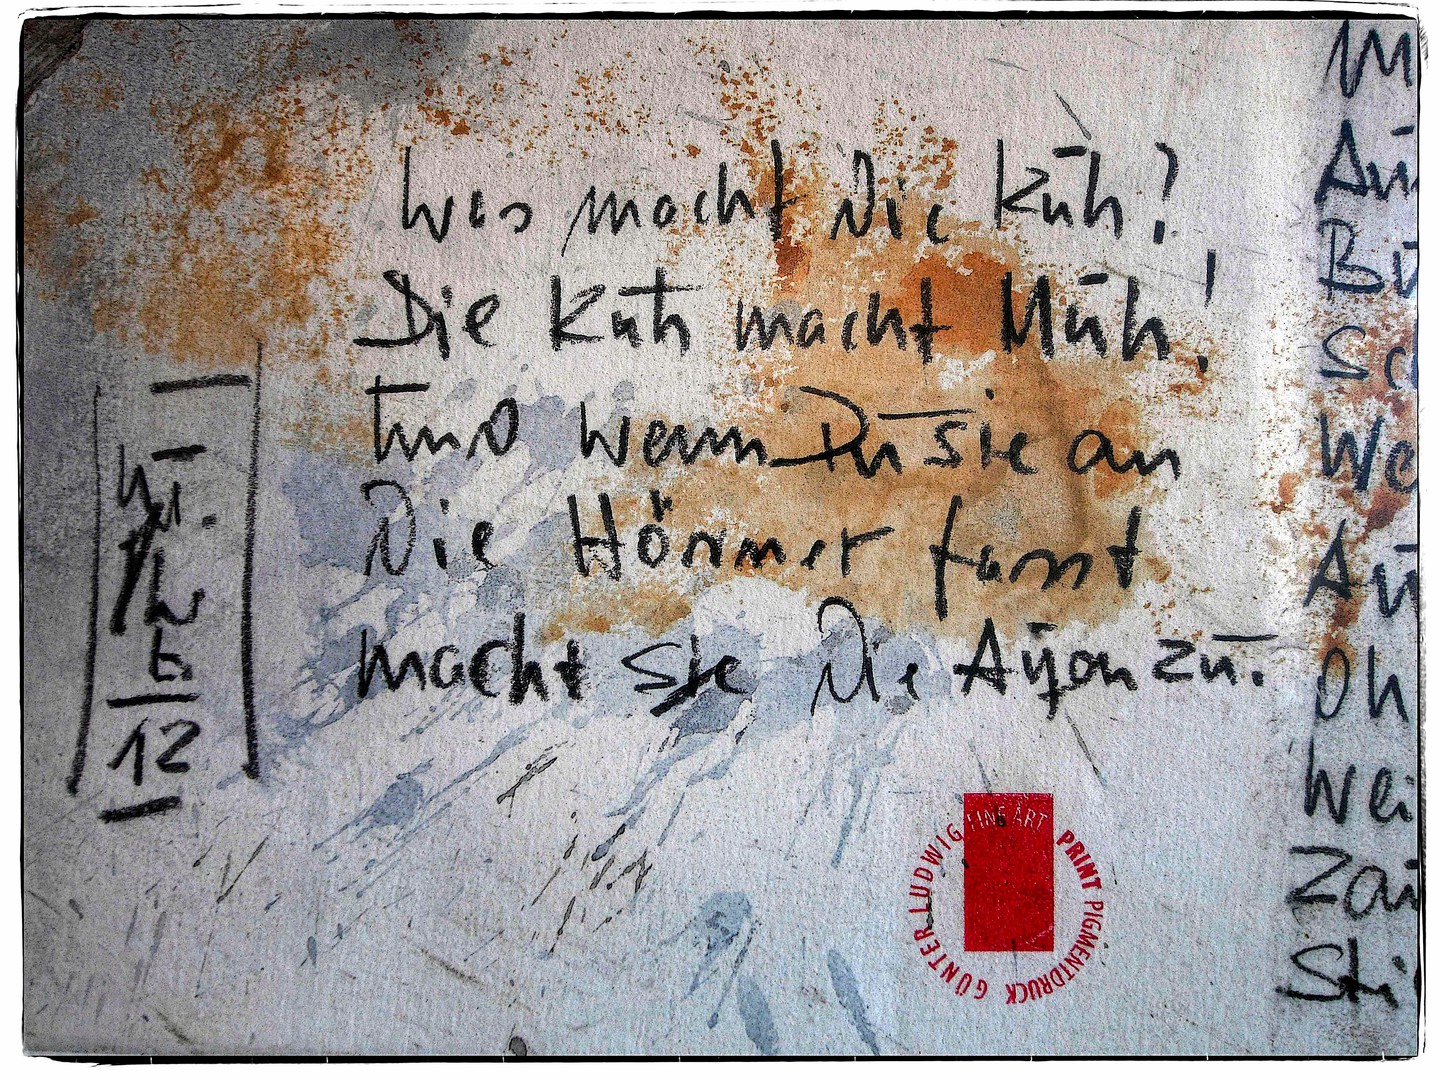 Was macht die Kuh?
Die Kuh macht Muh!
Und wenn Du sie an
die Hörner fasst
macht sie die Augen zu.
12
GÜNTER LUDWIG FINE ART PRINT PIGMENTDRUCK
M
Au
Bu
Sc
We
Au
Oh
Wei
Zai
Sti